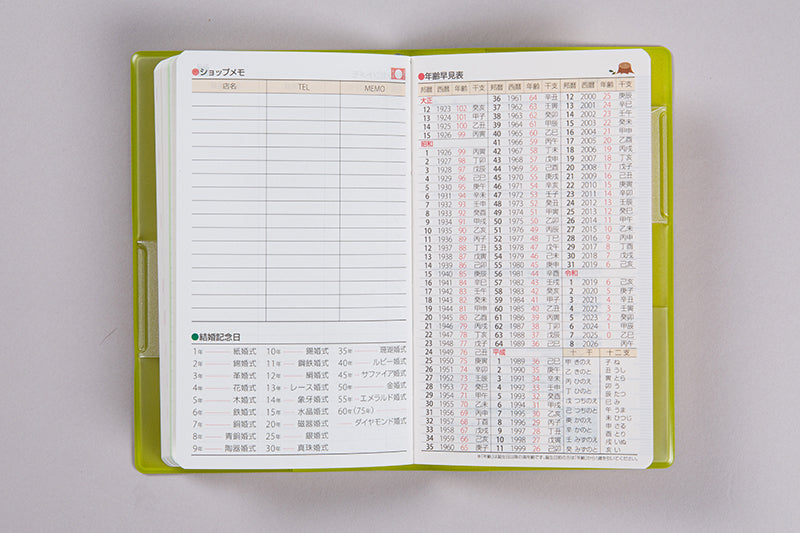 ●ショップメモ
店名 TEL MEMO
●結婚記念日
1年 紙婚式
2年 綿婚式
3年 革婚式
4年 花婚式
5年 木婚式
6年 鉄婚式
7年 銅婚式
8年 青銅婚式
9年 陶器婚式
10年 錫婚式
11年 鋼鉄婚式
12年 絹婚式
13年 レース婚式
14年 象牙婚式
15年 水晶婚式
20年 磁器婚式
25年 銀婚式
30年 真珠婚式
35年 珊瑚婚式
40年 ルビー婚式
45年 サファイア婚式
50年 金婚式
55年 エメラルド婚式
60年(75年)
ダイヤモンド婚式
●年齢早見表
邦暦 西暦 年齢 干支
大正
12 1923 102 癸亥
13 1924 101 甲子
14 1925 100 乙丑
15 1926 99 丙寅
昭和
1 1926 99 丙寅
2 1927 98 丁卯
3 1928 97 戊辰
4 1929 96 己巳
5 1930 95 庚午
6 1931 94 辛未
7 1932 93 壬申
8 1933 92 癸酉
9 1934 91 甲戌
10 1935 90 乙亥
11 1936 89 丙子
12 1937 88 丁丑
13 1938 87 戊寅
14 1939 86 己卯
15 1940 85 庚辰
16 1941 84 辛巳
17 1942 83 壬午
18 1943 82 癸未
19 1944 81 甲申
20 1945 80 乙酉
21 1946 79 丙戌
22 1947 78 丁亥
23 1948 77 戊子
24 1949 76 己丑
25 1950 75 庚寅
26 1951 74 辛卯
27 1952 73 壬辰
28 1953 72 癸巳
29 1954 71 甲午
30 1955 70 乙未
31 1956 69 丙申
32 1957 68 丁酉
33 1958 67 戊戌
34 1959 66 己亥
35 1960 65 庚子
邦暦 西暦 年齢 干支
36 1961 64 辛丑
37 1962 63 壬寅
38 1963 62 癸卯
39 1964 61 甲辰
40 1965 60 乙巳
41 1966 59 丙午
42 1967 58 丁未
43 1968 57 戊申
44 1969 56 己酉
45 1970 55 庚戌
46 1971 54 辛亥
47 1972 53 壬子
48 1973 52 癸丑
49 1974 51 甲寅
50 1975 50 乙卯
51 1976 49 丙辰
52 1977 48 丁巳
53 1978 47 戊午
54 1979 46 己未
55 1980 45 庚申
56 1981 44 辛酉
57 1982 43 壬戌
58 1983 42 癸亥
59 1984 41 甲子
60 1985 40 乙丑
61 1986 39 丙寅
62 1987 38 丁卯
63 1988 37 戊辰
64 1989 36 己巳
平成
1 1989 36 己巳
2 1990 35 庚午
3 1991 34 辛未
4 1992 33 壬申
5 1993 32 癸酉
6 1994 31 甲戌
7 1995 30 乙亥
8 1996 29 丙子
9 1997 28 丁丑
10 1998 27 戊寅
11 1999 26 己卯
邦暦 西暦 年齢 干支
12 2000 25 庚辰
13 2001 24 辛巳
14 2002 23 壬午
15 2003 22 癸未
16 2004 21 甲申
17 2005 20 乙酉
18 2006 19 丙戌
19 2007 18 丁亥
20 2008 17 戊子
21 2009 16 己丑
22 2010 15 庚寅
23 2011 14 辛卯
24 2012 13 壬辰
25 2013 12 癸巳
26 2014 11 甲午
27 2015 10 乙未
28 2016 9 丙申
29 2017 8 丁酉
30 2018 7 戊戌
31 2019 6 己亥
令和
1 2019 6 己亥
2 2020 5 庚子
3 2021 4 辛丑
4 2022 3 壬寅
5 2023 2 癸卯
6 2024 1 甲辰
7 2025 0 乙巳
8 2026 丙午
十干
甲 きのえ
乙 きのと
丙 ひのえ
丁 ひのと
戊 つちのえ
己 つちのと
庚 かのえ
辛 かのと
壬 みずのえ
癸 みずのと
十二支
子 ね
丑 うし
寅 とら
卯 う
辰 たつ
巳 み
午 うま
未 ひつじ
申 さる
酉 とり
戌 いぬ
亥 い
※「年齢」は誕生日以降の満年齢です。誕生日前の方は「年齢」から1歳を引いてください。